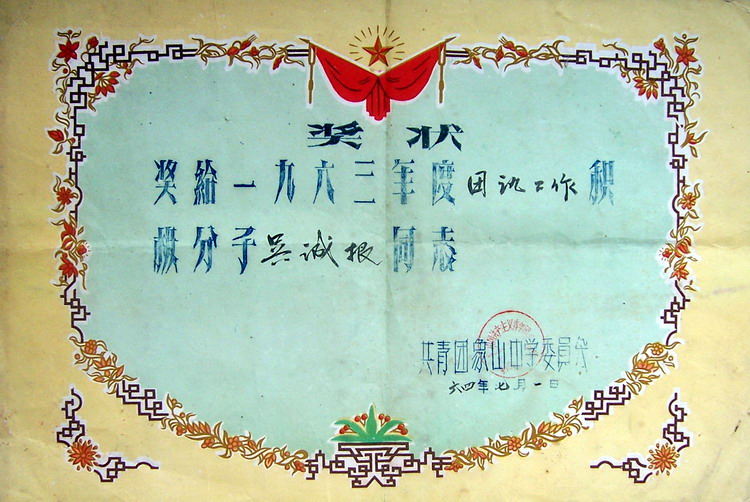 奖状
奖给一九六三年度团讯工作积
极分子吴诚报同志
共青团象山中学委员会
六四年七月一日